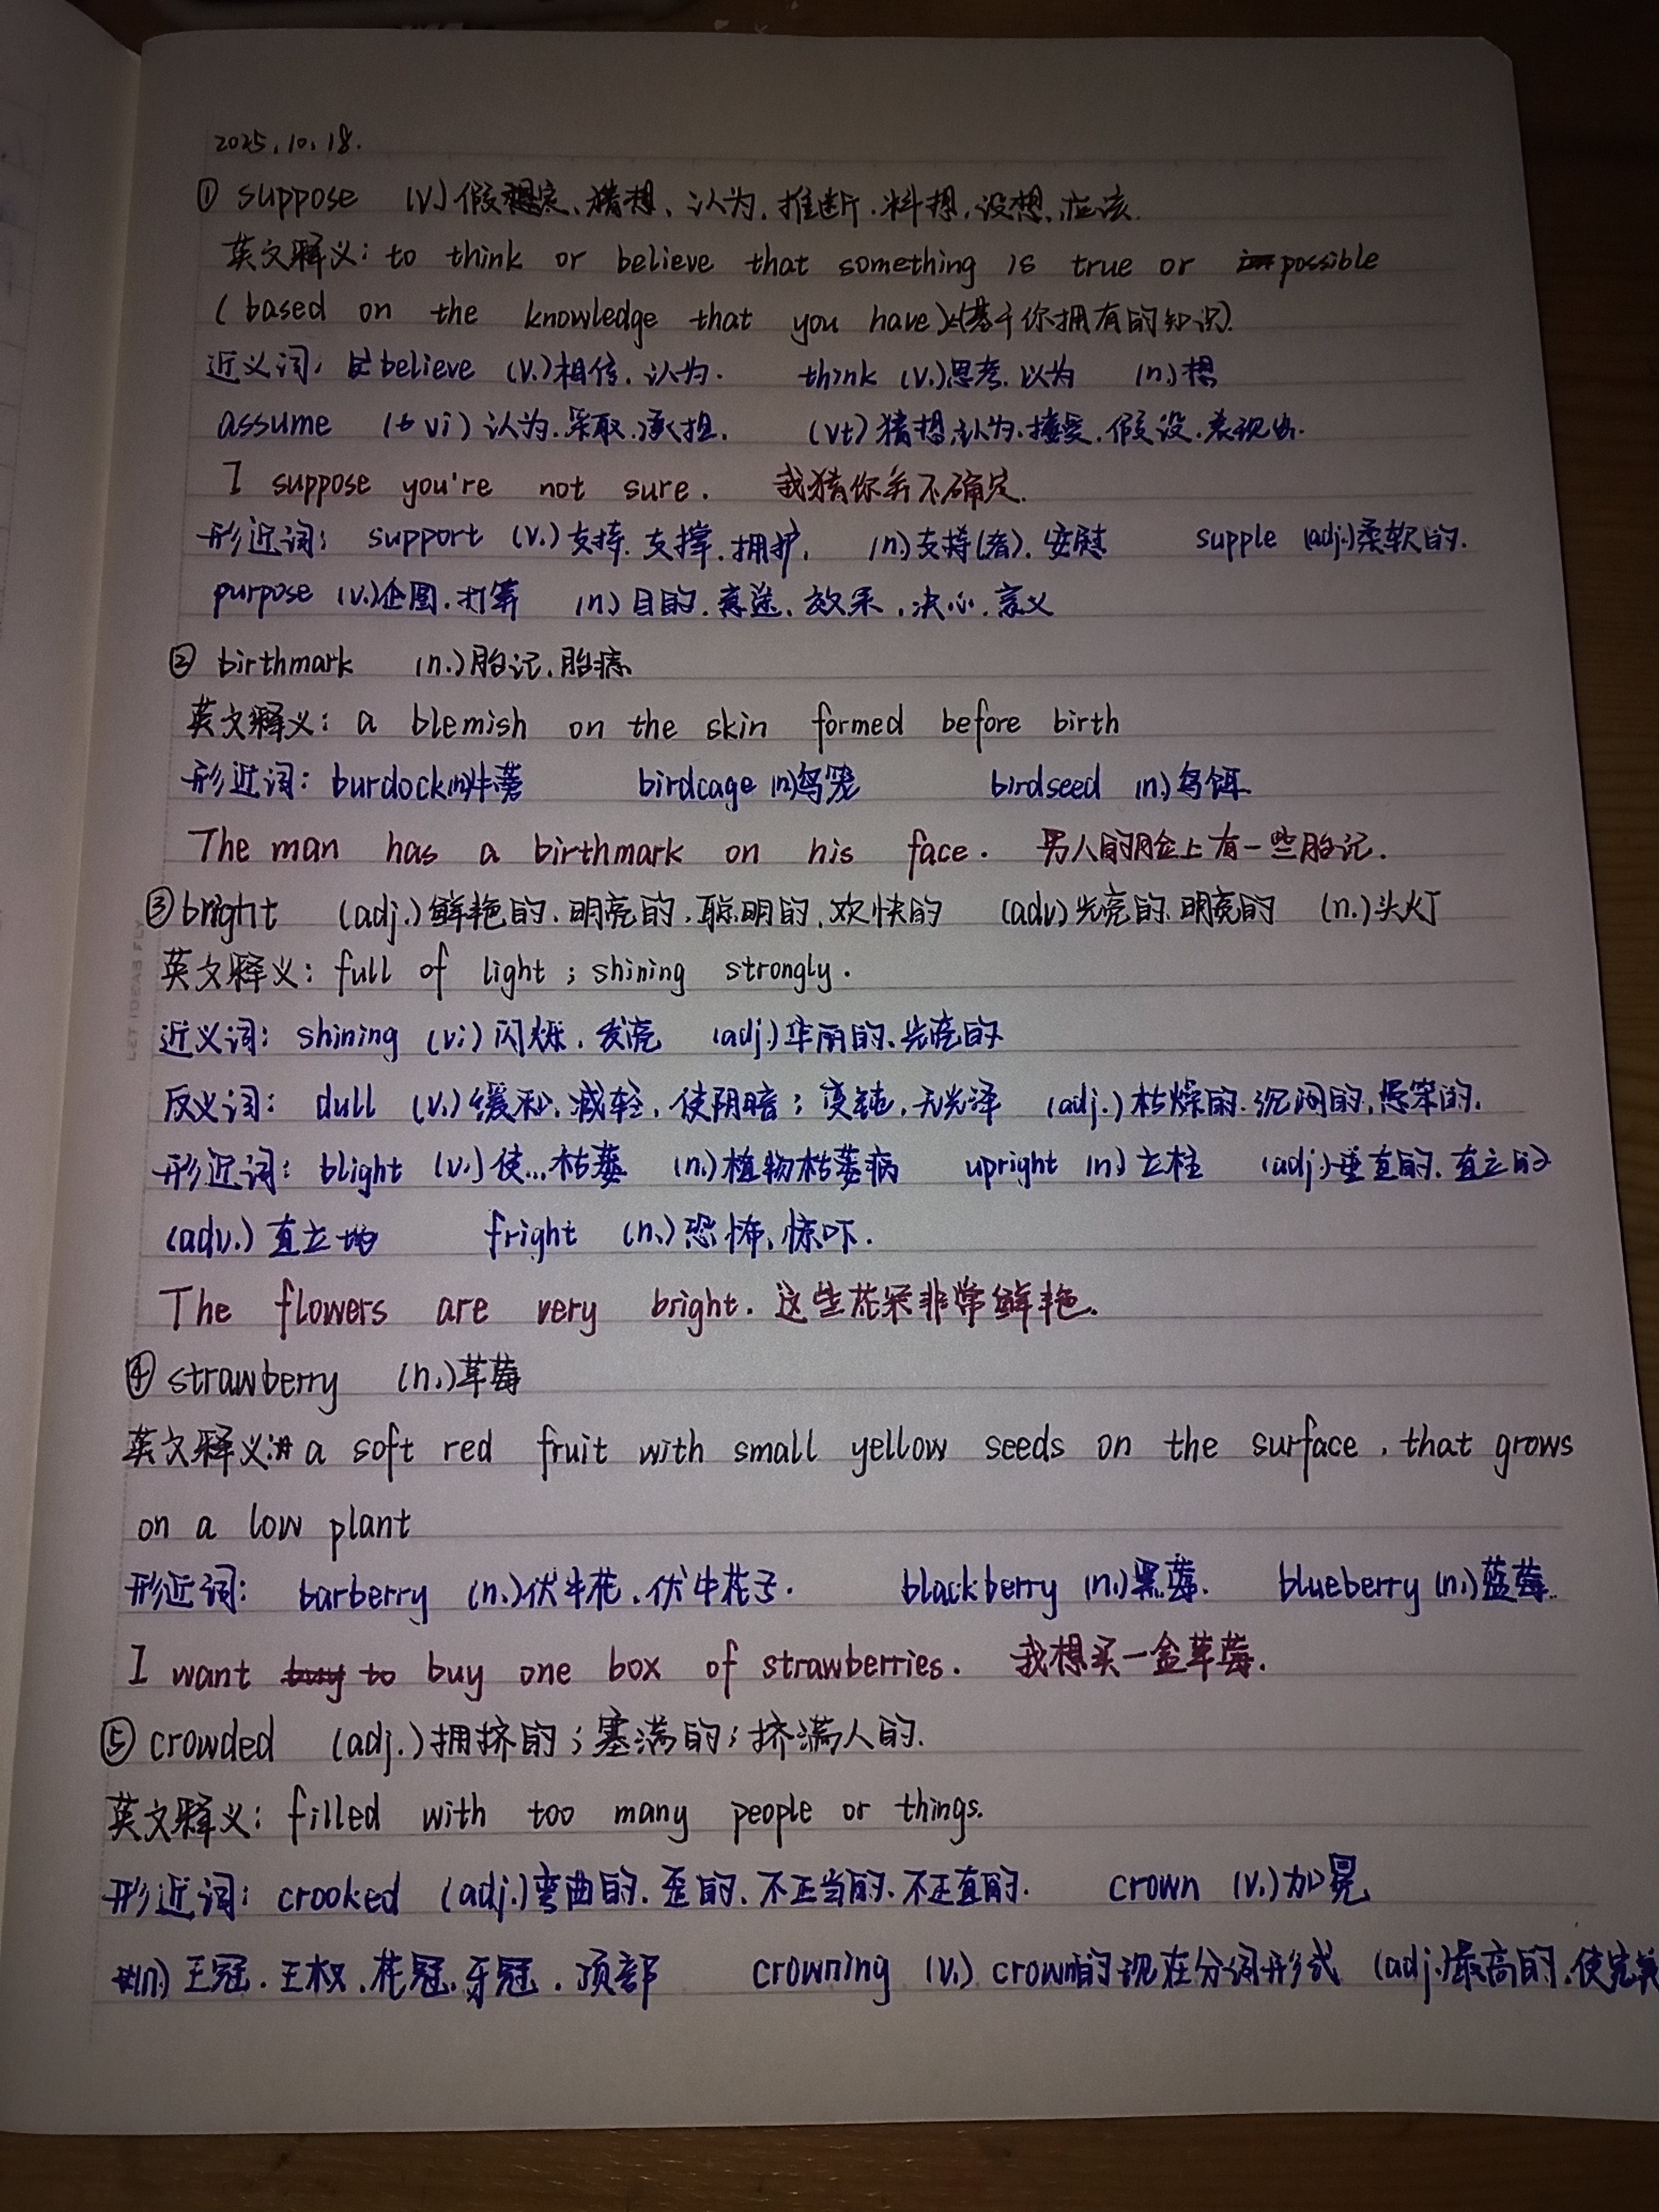 2025.10.18.
① suppose (v.)假定、猜想、认为、推断、料想、设想、应该.
英文释义: to think or believe that something is true or possible
(based on the knowledge that you have)(基于你拥有的知识).
近义词: believe (v.)相信、认为. think (v.)思考、以为 (n.)想
assume (vi)认为、采取、承担. (vt)猜想、认为、接受、假设、表现出.
I suppose you're not sure. 我猜你并不确定.
形近词: support (v.)支持、支撑、拥护. (n.)支持(者)、安慰 supple (adj.)柔软的.
purpose (v.)企图、打算 (n.)目的、意途、效果、决心、意义
② birthmark (n.)胎记、胎痣
英文释义: a blemish on the skin formed before birth
形近词: burdock(n.)牛蒡 birdcage (n.)鸟笼 birdseed (n.)鸟饵.
The man has a birthmark on his face. 男人的脸上有一些胎记.
③ bright (adj.)鲜艳的、明亮的、聪明的、欢快的 (adv.)光亮的、明亮的 (n.)头灯
英文释义: full of light; shining strongly.
近义词: shining (vi)闪烁、发亮 (adj.)华丽的、光亮的
反义词: dull (v.)缓和、减轻、使阴暗; 变钝、无光泽 (adj.)枯燥的、沉闷的、愚笨的.
形近词: blight (v.)使...枯萎 (n.)植物枯萎病 upright (n.)立柱 (adj.)垂直的、直立的
(adv.)直立地 fright (n.)恐怖、惊吓.
The flowers are very bright. 这些花朵非常鲜艳.
④ strawberry (n.)草莓
英文释义: a soft red fruit with small yellow seeds on the surface, that grows
on a low plant
形近词: barberry (n.)伏牛花、伏牛花子. blackberry (n.)黑莓. blueberry (n.)蓝莓.
I want buy one box of strawberries. 我想买一盒草莓.
⑤ crowded (adj.)拥挤的; 塞满的; 挤满人的.
英文释义: filled with too many people or things.
形近词: crooked (adj.)弯曲的、歪的、不正当的、不正直的. crown (v.)加冕
(n.)王冠、王权、花冠、牙冠、顶部 crowning (v.) crown的现在分词形式 (adj.)最高的、使完美